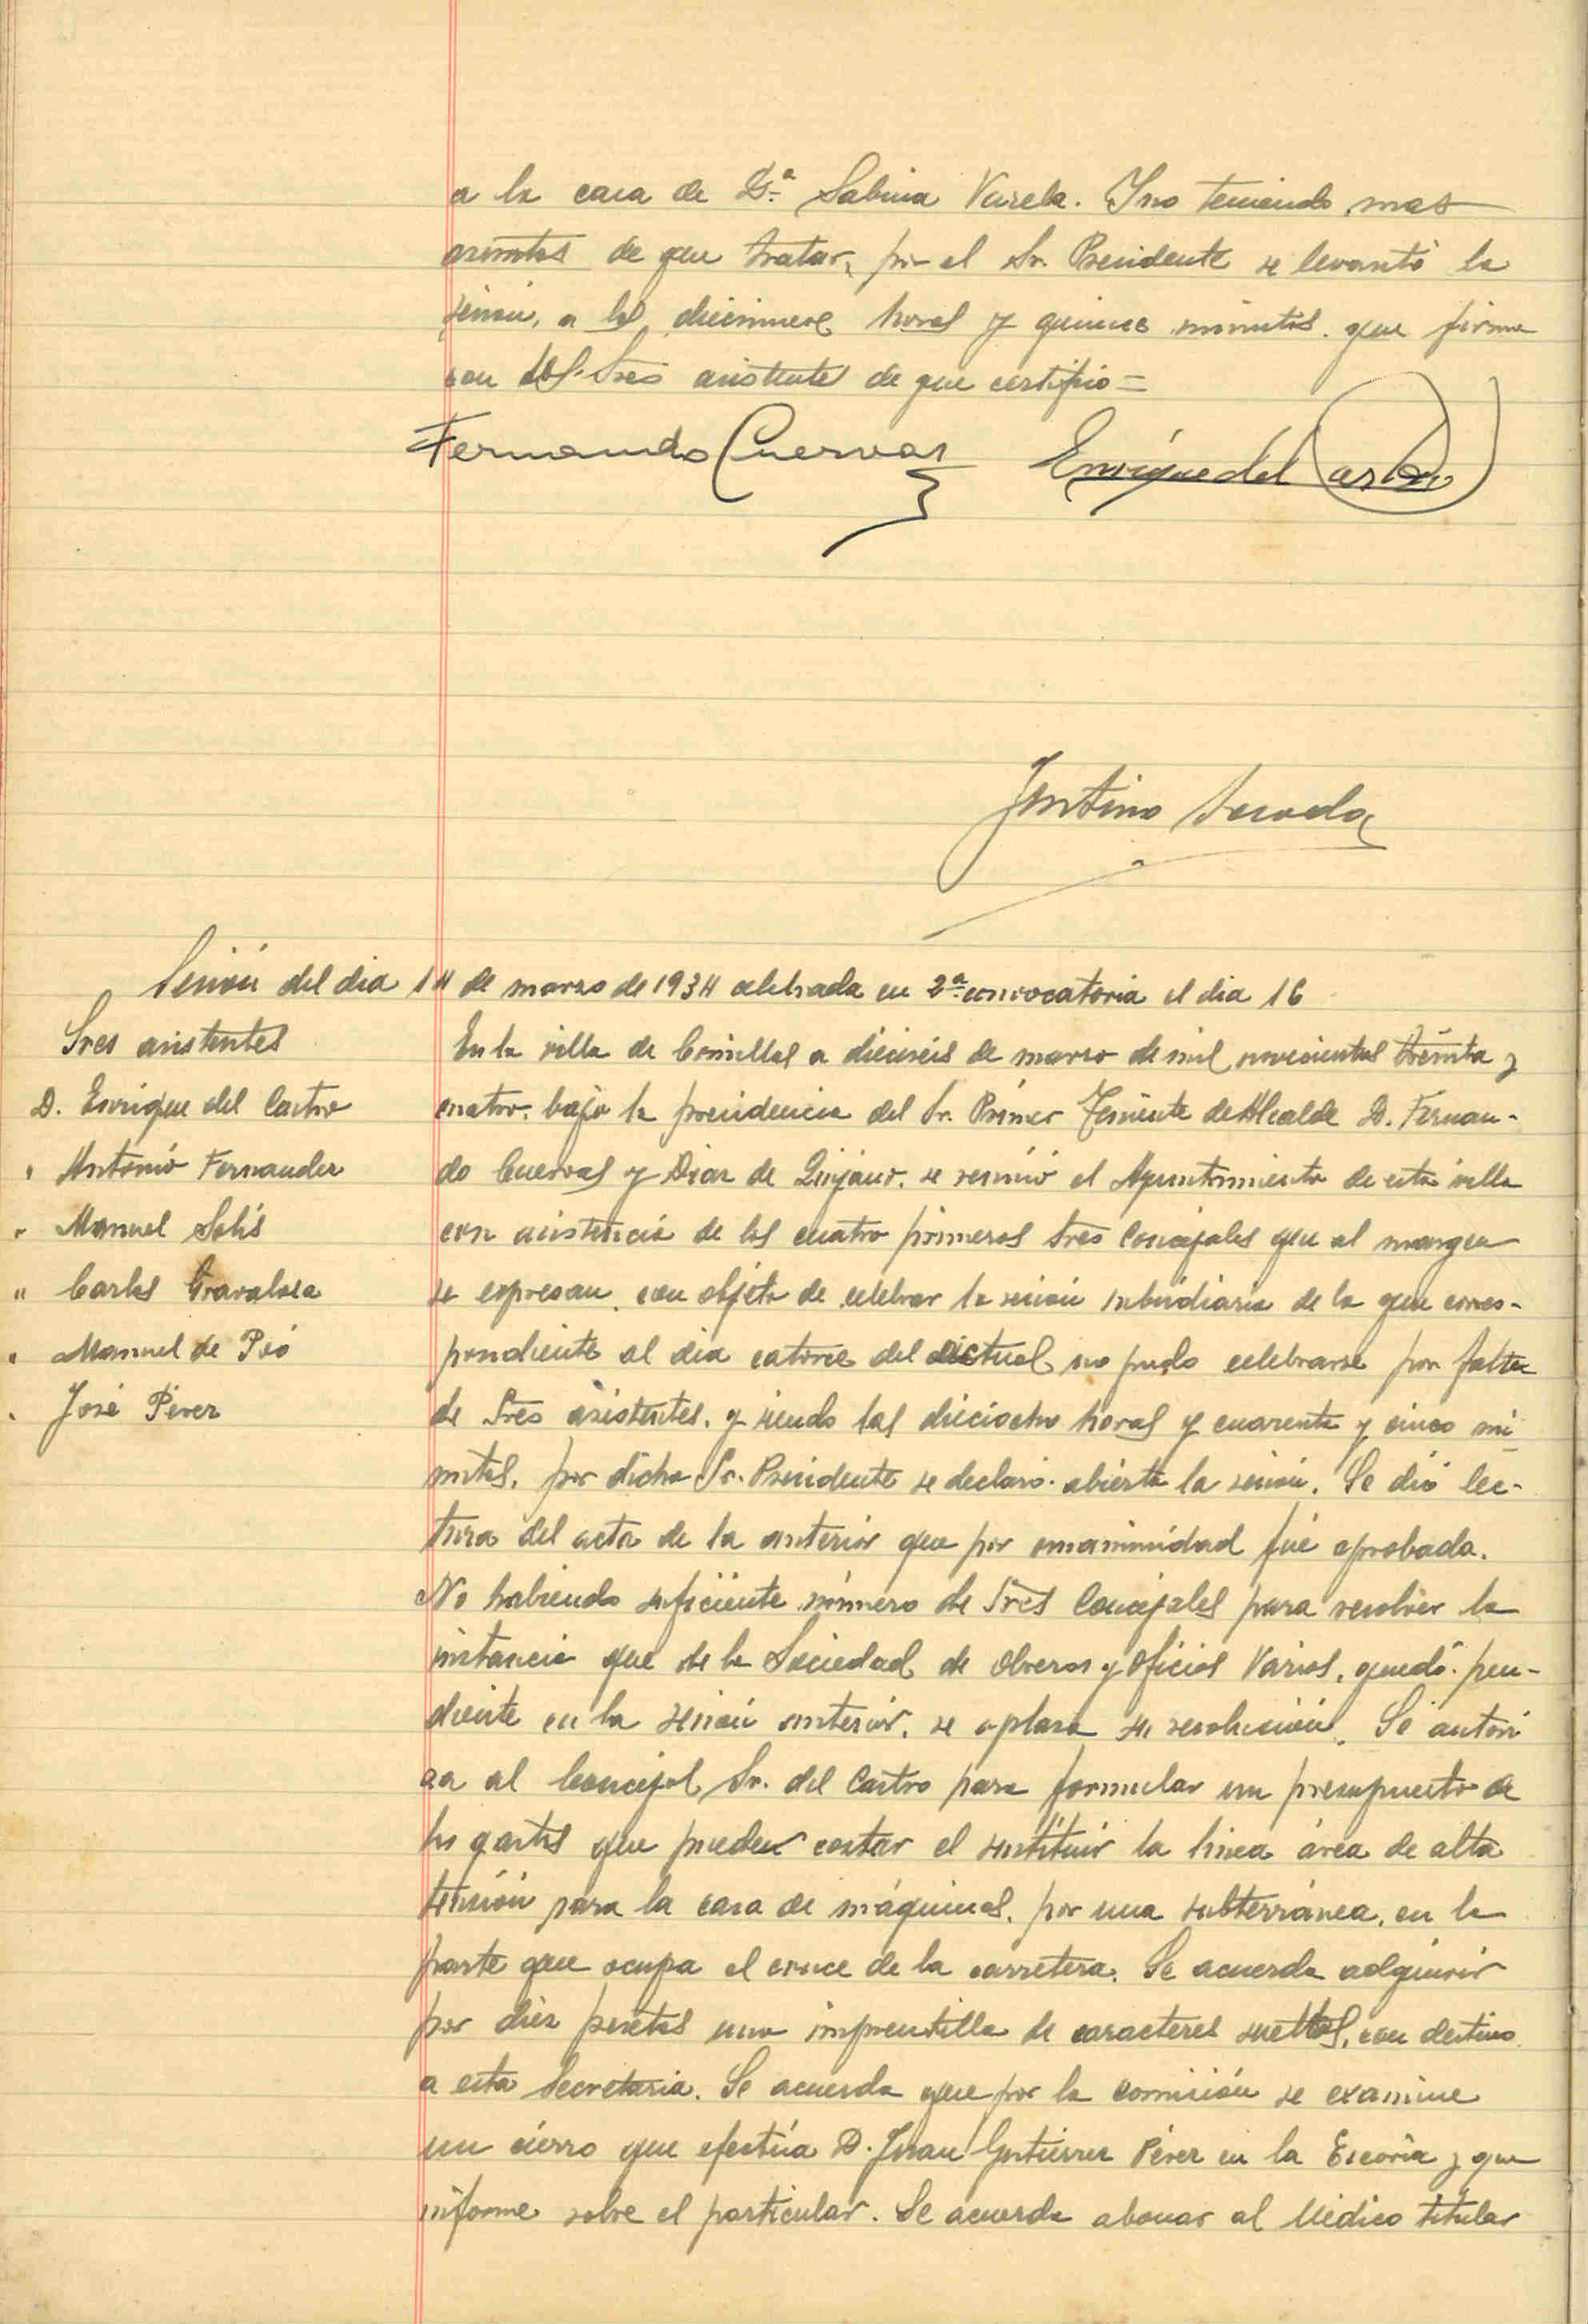 a la casa de D.ª Sabina Varela. Y no teniendo mas
asuntos de que tratar, por el Sr. Presidente se levantó la
sesion, a las diecinueve horas y quince minutos. que firma
con los Sres asistentes de que certifico =
Fernando Cuervas Enrique del Castro
Sesión del dia 14 de marzo de 1934 celebrada en 2ª convocatoria el dia 16
Sres asistentes
D. Enrique del Castro
" Antonio Fernandez
" Manuel Solís
" Carlos
" Manuel de Pió
" José Pérez
En la villa de Comillas a dieciséis de marzo de mil novecientos treinta y
cuatro, bajo la presidencia del Sr. Primer Teniente de Alcalde D. Fernan-
do Cuervas y Diaz de Quijano, se reunió el Ayuntamiento de esta villa
con asistencia de los cuatro primeros Sres Concejales que al margen
se expresan, con objeto de celebrar la sesión subsidiaria de la que corres-
pondiente al dia catorce del actual no pudo celebrarse por falta
de Sres asistentes, y siendo las dieciocho horas y cuarenta y cinco mi-
nutos, por dicho Sr. Presidente se declaró abierta la sesión. Se dió lec-
tura del acta de la anterior que por unanimidad fué aprobada.
No habiendo suficiente número de Sres Concejales para resolver la
instancia que de la Sociedad de Obreros y Oficios Varios, quedó pen-
diente en la sesión anterior, se aplaza su resolución. Se autori
za al Concejal Sr. del Castro para formular un presupuesto de
los gastos que pueden costar el sustituir la linea área de alta
tensión para la casa de máquinas, por una subterránea, en la
parte que ocupa el cruce de la carretera. Se acuerda adquirir
por diez pesetas una imprentilla de caracteres sueltos, con destino
a esta Secretaria. Se acuerda que por la comisión se examine
un cierro que efectúa D. Juan Gutierrez Pérez en la Escoria y que
informe sobre el particular. Se acuerda abonar al Médico titular